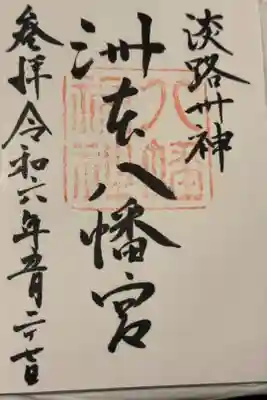 淡路州神
洲本八幡宮
八幡神社
参拝令和六年五月二十七日